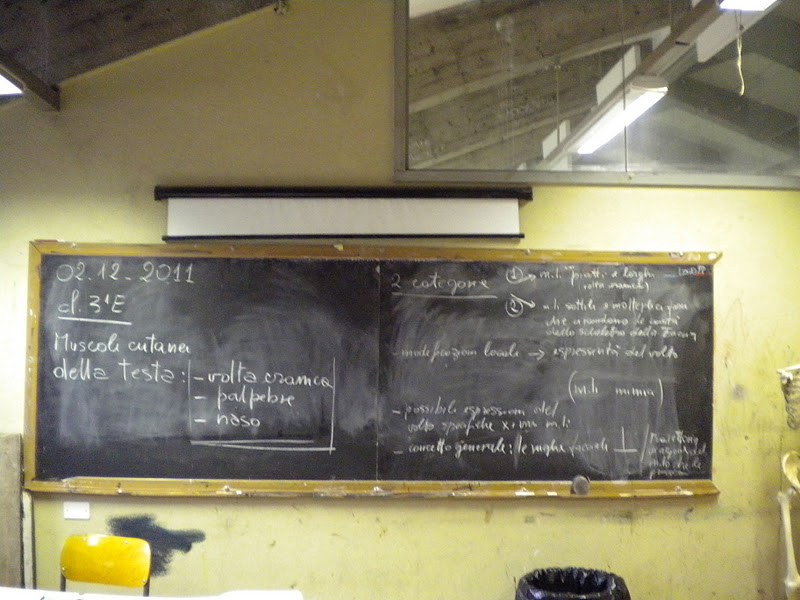 02.12.2011
cl. 3ªE
Muscoli cutanei
della testa: - volta cranica
- palpebre
- naso
2 categorie
① → m.li piatti e larghi
volta cranica)
② m.li sottili e
dello scheletro della
- modificazioni locali → espressività del volto
(m.li mimici)
- possibili espressioni del
volto specifiche x i vari m.li
- concetto generale: le rughe ⊥